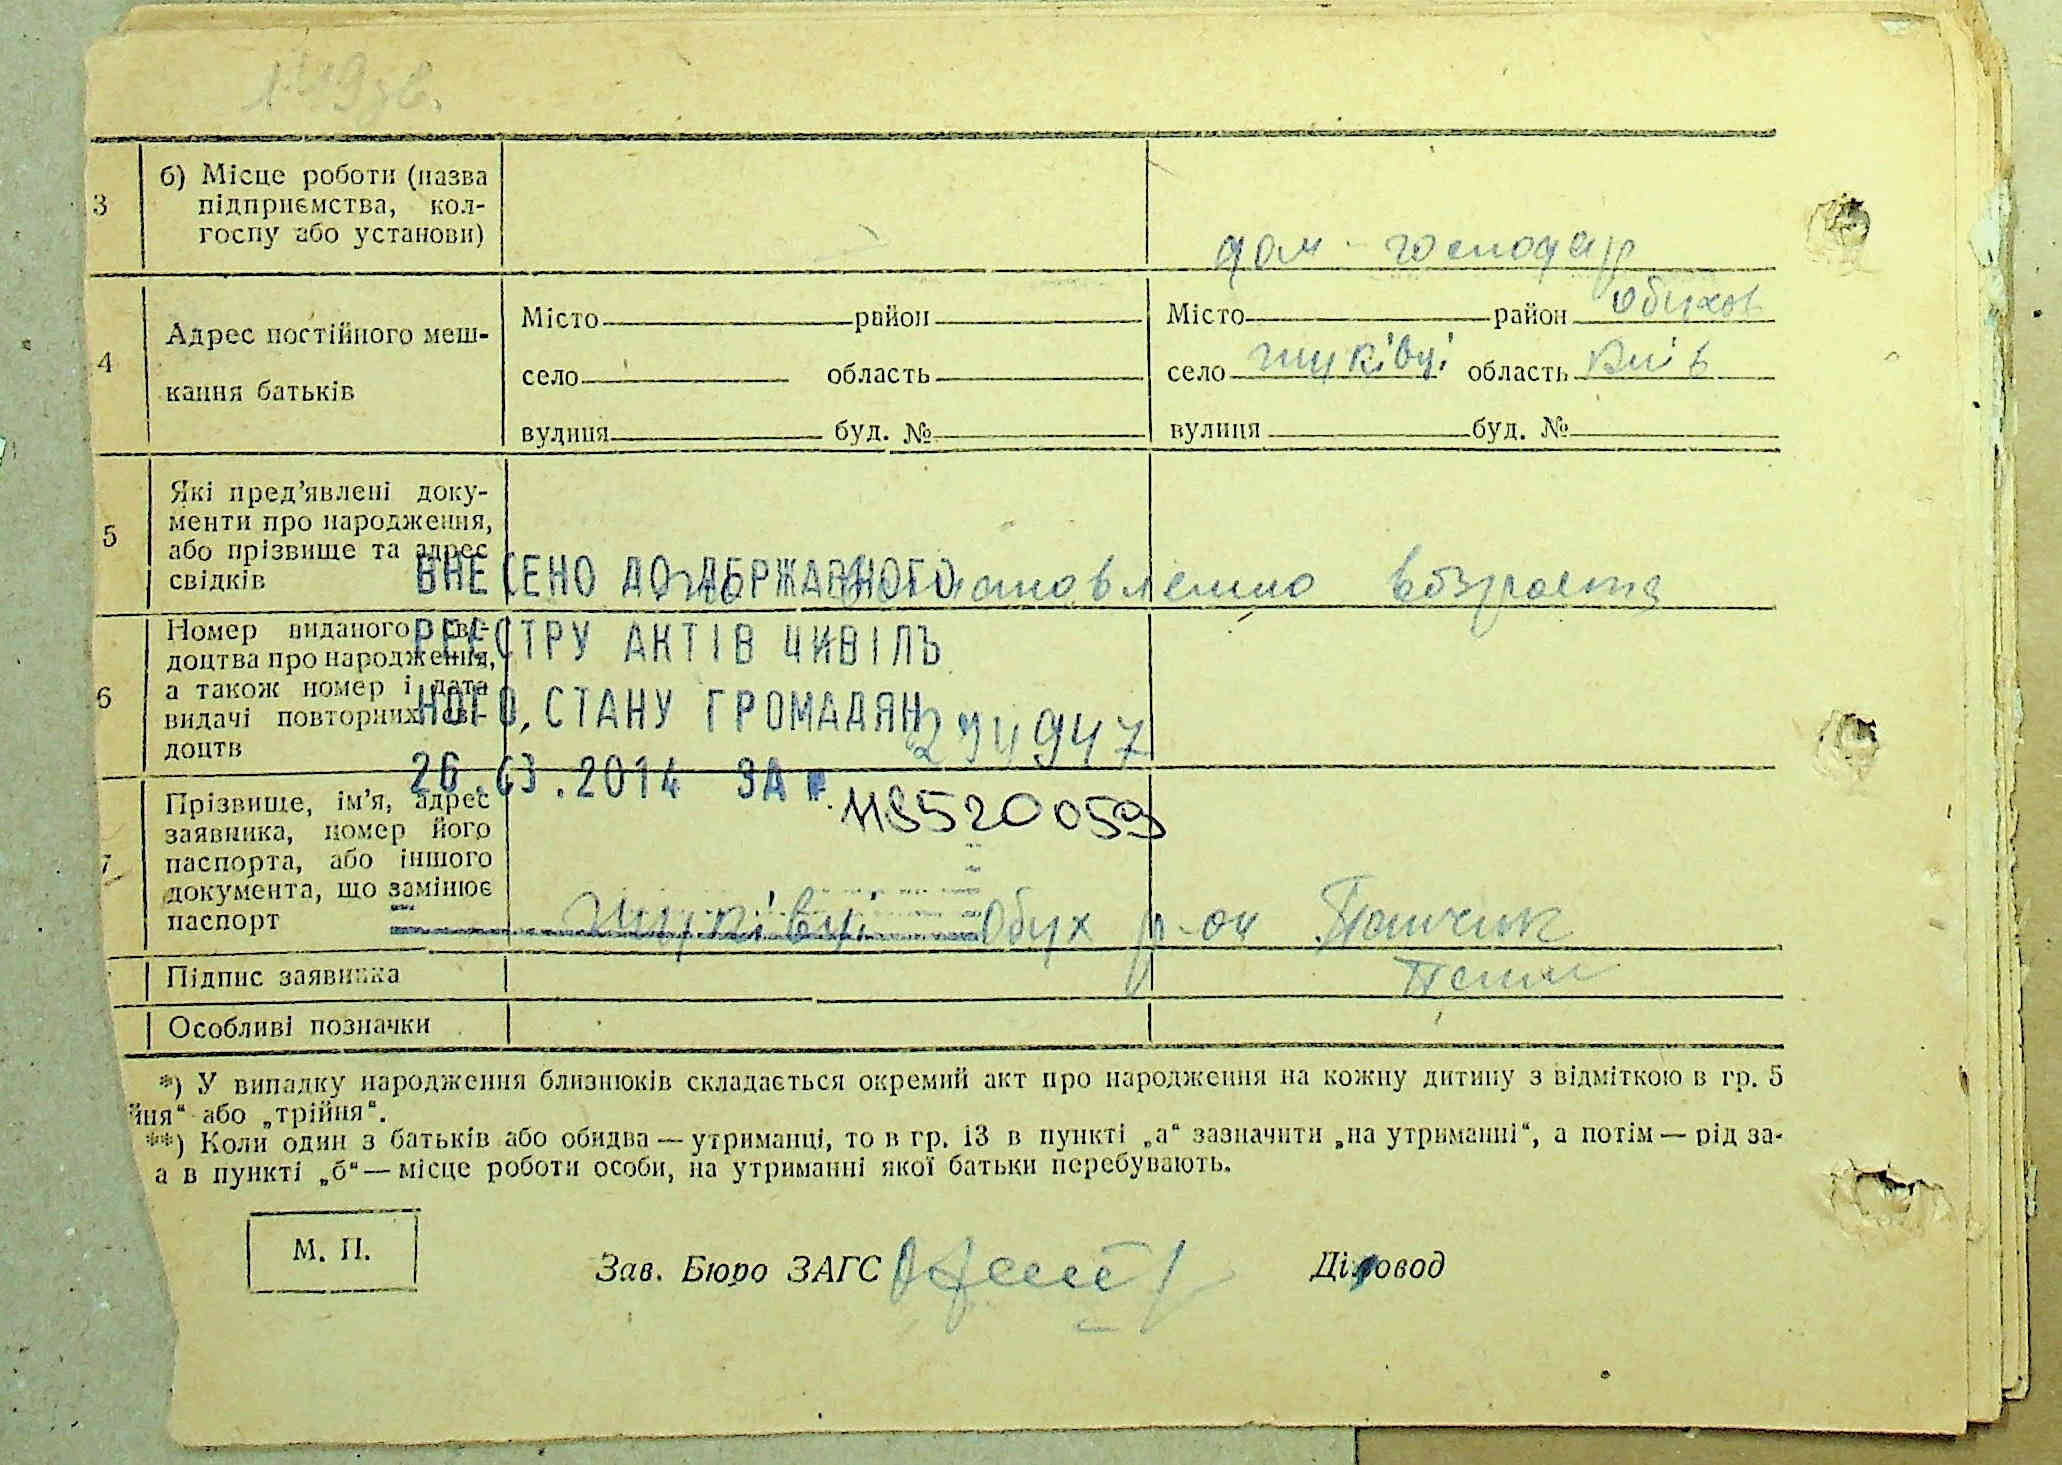 3 б) Місце роботи (назва
підприємства, кол-
госпу або установи)
дом-господар
4 Адрес постійного меш-
кання батьків
Місто район
село область
вулиця буд. №
Місто район Обухов
село Жуківці область Київ
вулиця буд. №
5 Які пред’явлені доку-
менти про народження,
або прізвище та адрес
свідків
возраста
6 Номер виданого сві-
доцтва про народження,
а також номер і дата
видачі повторних сві-
доцтв
294947
ВНЕСЕНО ДО ДЕРЖАВНОГО
РЕЄСТРУ АКТІВ ЦИВІЛЬ
НОГО СТАНУ ГРОМАДЯН
26.03.2014 ЗА №
118520059
7 Прізвище, ім’я, адрес
заявника, номер його
паспорта, або іншого
документа, що замінює
паспорт
Жуківці Обух р-он
Підпис заявника
Особливі позначки
*) У випадку народження близнюків складається окремий акт про народження на кожну дитину з відміткою в гр. 5
йня“ або „трійня“.
**) Коли один з батьків або обидва — утриманці, то в гр. 13 в пункті „а“ зазначити „на утриманні“, а потім — рід за-
а в пункті „б“ — місце роботи особи, на утриманні якої батьки перебувають.
М. П.
Зав. Бюро ЗАГС
Діловод